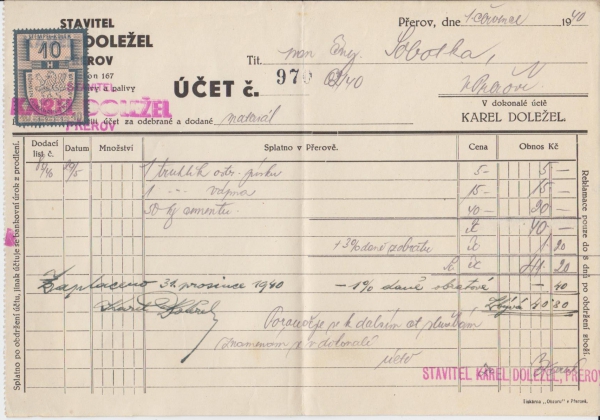 STAVITEL
DOLEŽEL
Přerov, dne 1. červenec 1940
10
H
EROV
on 167
palivy
Tit. pan Ing. Sobotka,
v Přerově
ÚČET č. 970
/40
STAVITEL
KAREL DOLEŽEL
PŘEROV
V dokonalé úctě
KAREL DOLEŽEL.
účet za odebrané a dodané materiál
Dodací list. č. Datum Množství Splatno v Přerově. Cena Obnos Kč
29/5 1 truhlík ostr. písku 5·- 5 -
1 -"- vápna 15·- 15 -
50 kg cementu 40·- 20 -
Kč 40 -
+3% daně z obratu Kč 1 20
Kč 41 20
Zaplaceno 31. prosince 1940 - 1% daně obratové - 40
Zbývá 40·80
Karel Doležel
Poroučeje se k dalším
znamenám se v dokonalé
úctě
STAVITEL KAREL DOLEŽEL, PŘEROV
Splatno po obdržení účtu, jinak účtuje se bankovní úrok z prodlení.
Reklamace pouze do 8 dnů po obdržení zboží.
Tiskárna „Obzoru" v Přerově.